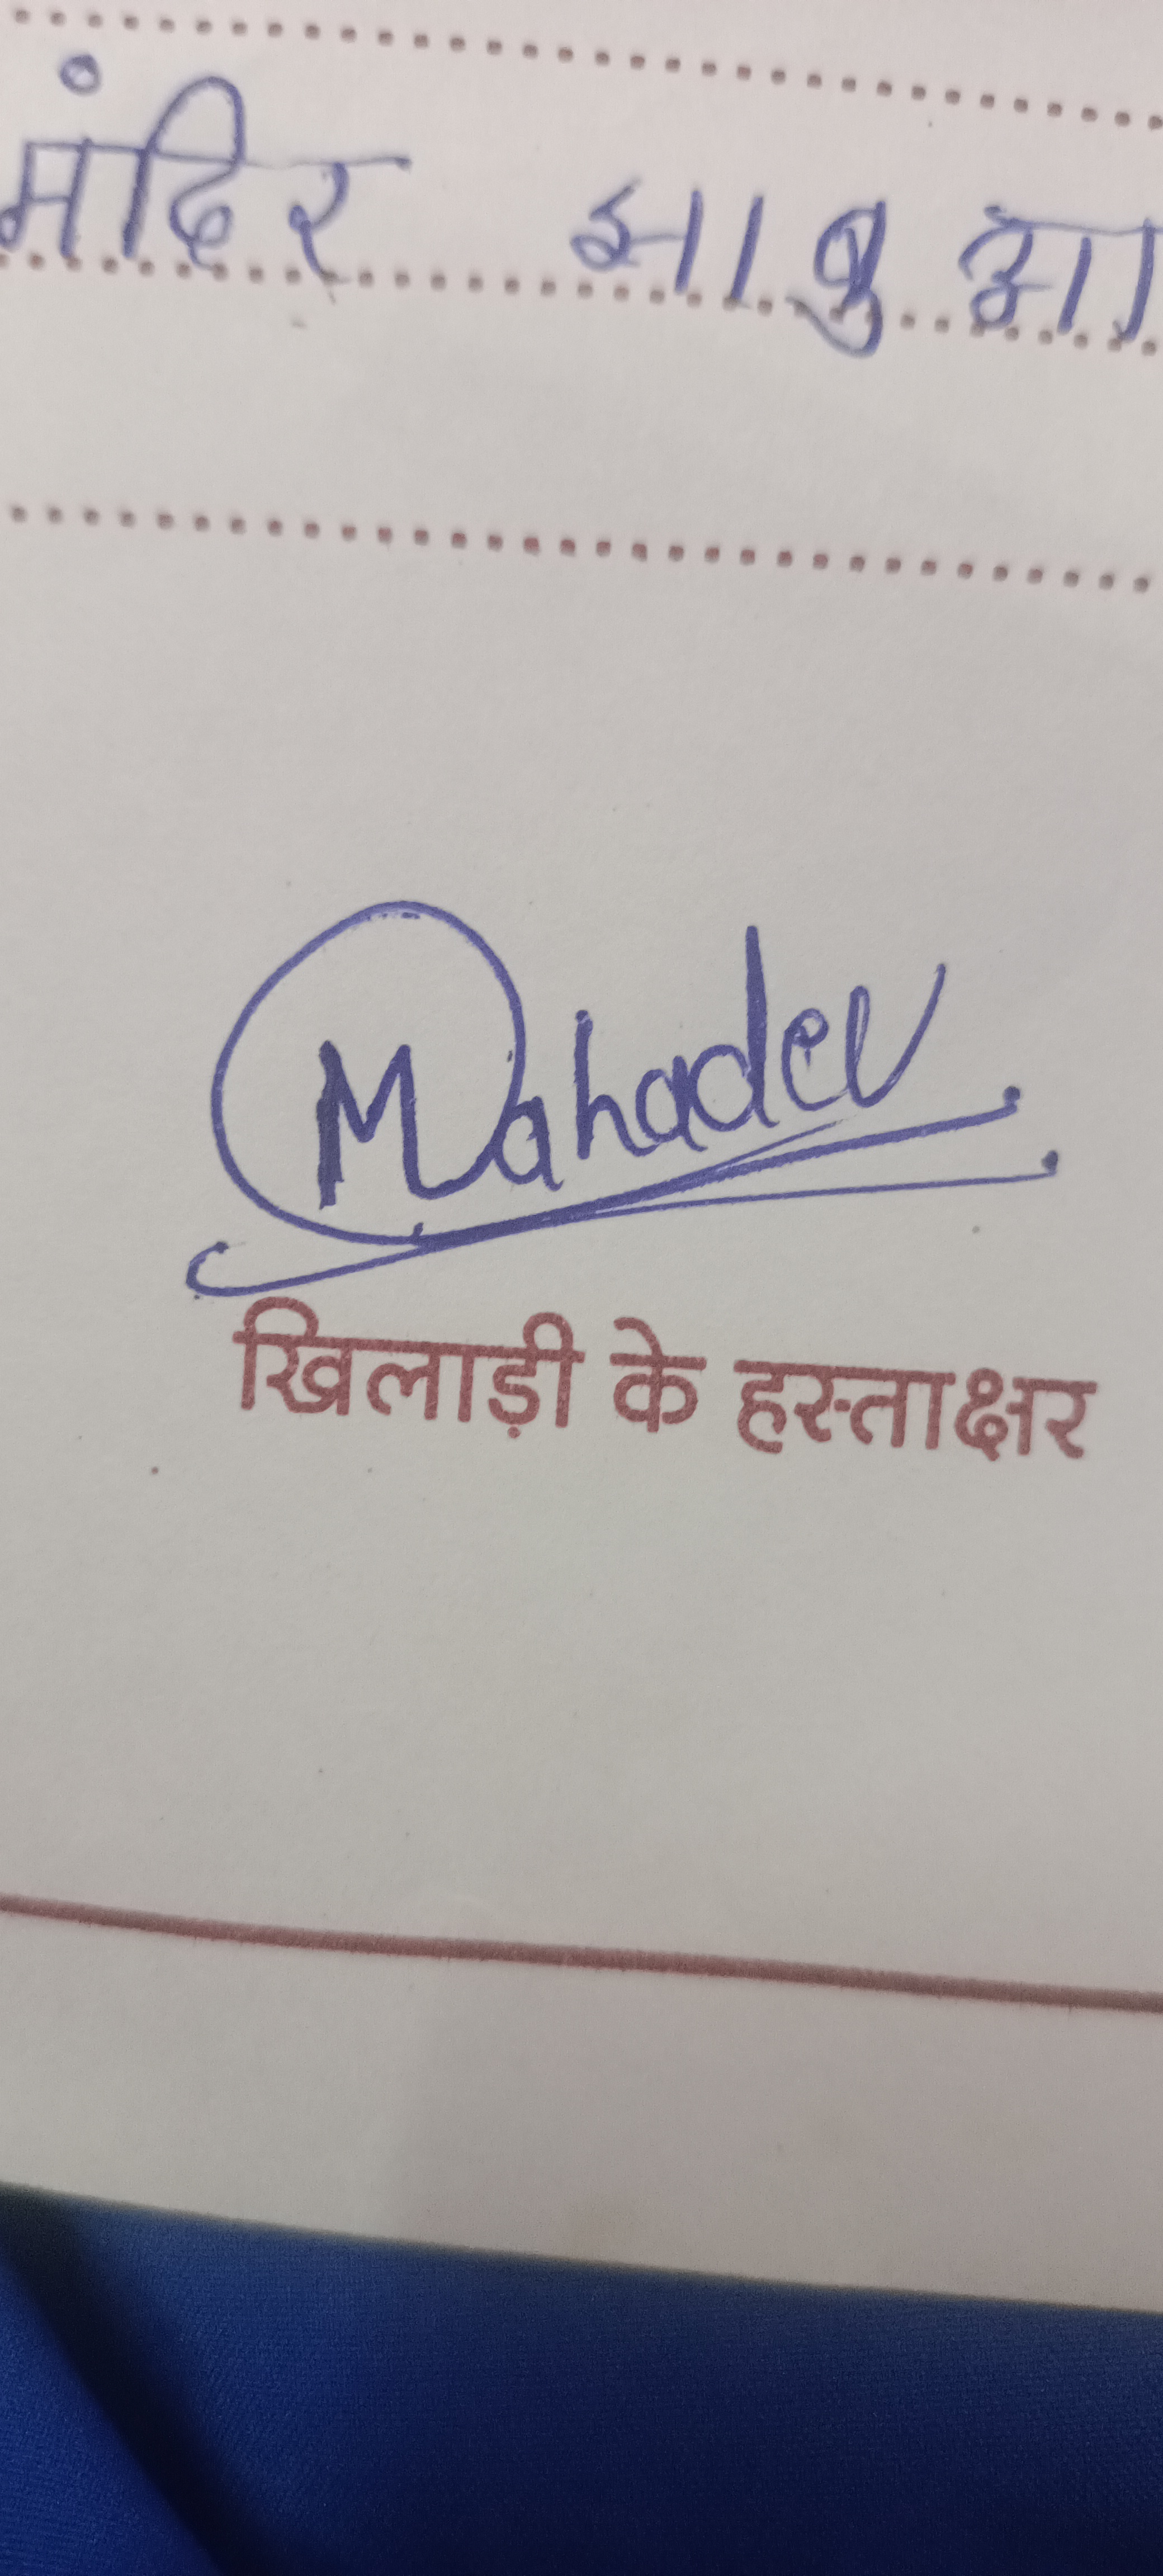 मंदिर झाबुआ
Mahadev
खिलाड़ी के हस्ताक्षर